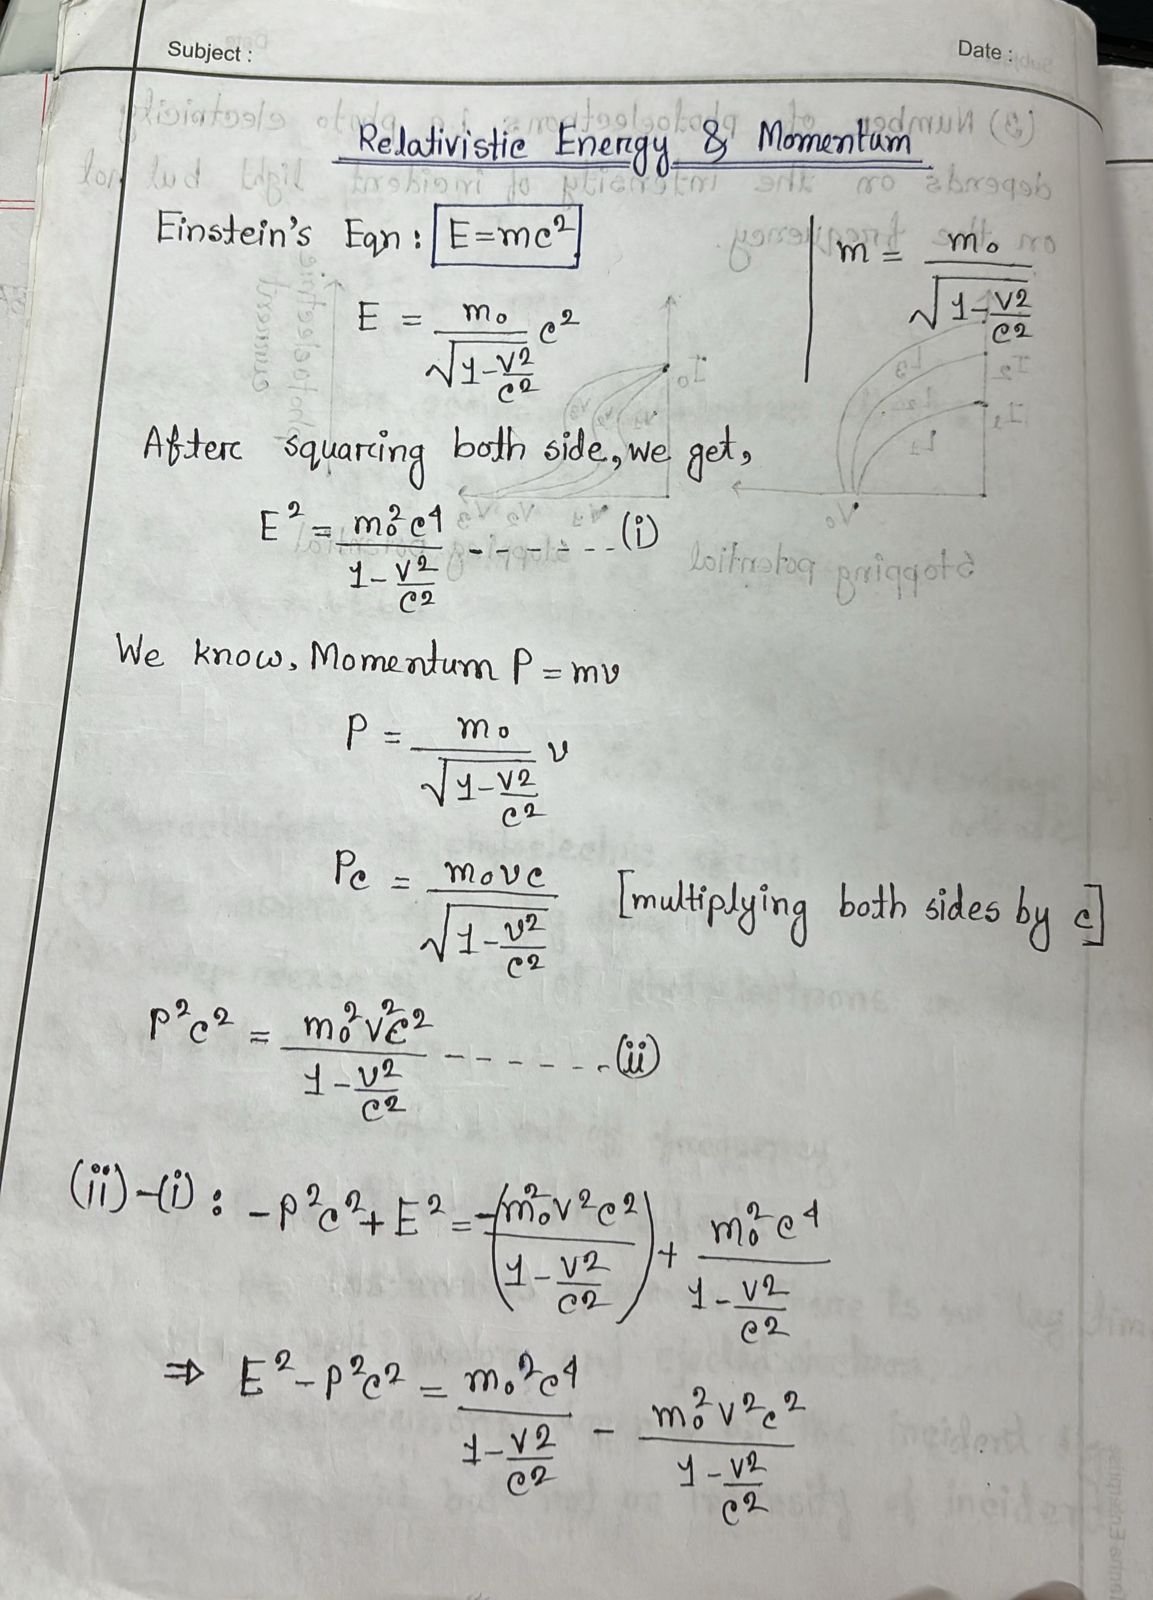 Subject :
Date :
Relativistic Energy & Momentum
Einstein's Eqn : E=mc²
m = m₀/√(1-v²/c²)
E = m₀/√(1-v²/c²) c²
After squaring both side, we get,
E² = m₀²c⁴/(1-v²/c²) ------- (i)
We know, Momentum P = mv
P = m₀/√(1-v²/c²) v
Pc = m₀vc/√(1-v²/c²) [multiplying both sides by c]
P²c² = m₀²v²c²/(1-v²/c²) ------- (ii)
(ii)-(i) : -P²c²+E² = -(m₀²v²c²/(1-v²/c²)) + m₀²c⁴/(1-v²/c²)
⇒ E²-P²c² = m₀²c⁴/(1-v²/c²) - m₀²v²c²/(1-v²/c²)